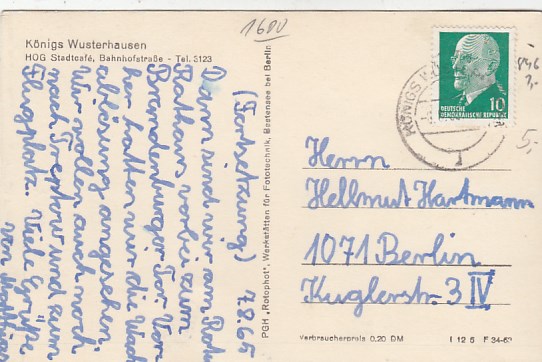 1600
Königs Wusterhausen
HOG Stadtcafé, Bahnhofstraße - Tel. 3123
(Fortsetzung) 7.8.65
Dann sind wir am Roten
Rathaus vorbei zum
Brandenburger Tor. Vor
her hatten wir die Wach
ablösung angesehen.
Wir wollen auch noch
nach Treptow und zum
Flugplatz. Viel Grüße
von
PGH „Rotophot", Werkstätten für Fototechnik, Bestensee bei Berlin
10
DEUTSCHE
DEMOKRATISCHE REPUBLIK
KÖNIGS W
5,-
Herrn
Hellmut Hartmann
1071 Berlin
Kuglerstr. 3 IV
Verbraucherpreis 0,20 DM
I 12 5 F 34-63